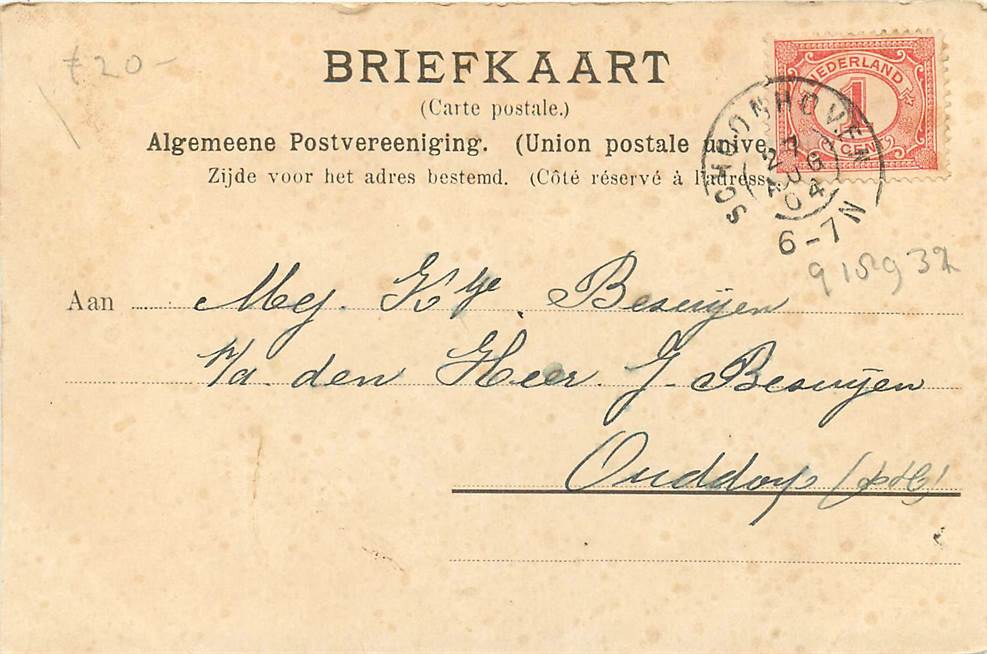 £20-
BRIEFKAART
(Carte postale.)
Algemeene Postvereeniging. (Union postale unive
Zijde voor het adres bestemd. (Côté réservé à l'adress
NEDERLAND
1
CENT
SCHOONHOVEN
27
AUG
04
6-7N
915932
Aan Mej. Ktje Besuijen
p/a. den Heer. J. Besuijen
Ouddorp (ZH)